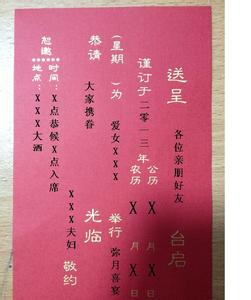 送呈 各位亲朋好友 台启
谨订于二○一三年
公历 X 月 X 日
农历 X 月 X 日
(星期 )为 爱女XXX 举行 弥月喜宴
恭请 大家携眷 光临
XXX夫妇 敬约
恕邀
时间:X点恭候X点入席
地点:XXX大酒